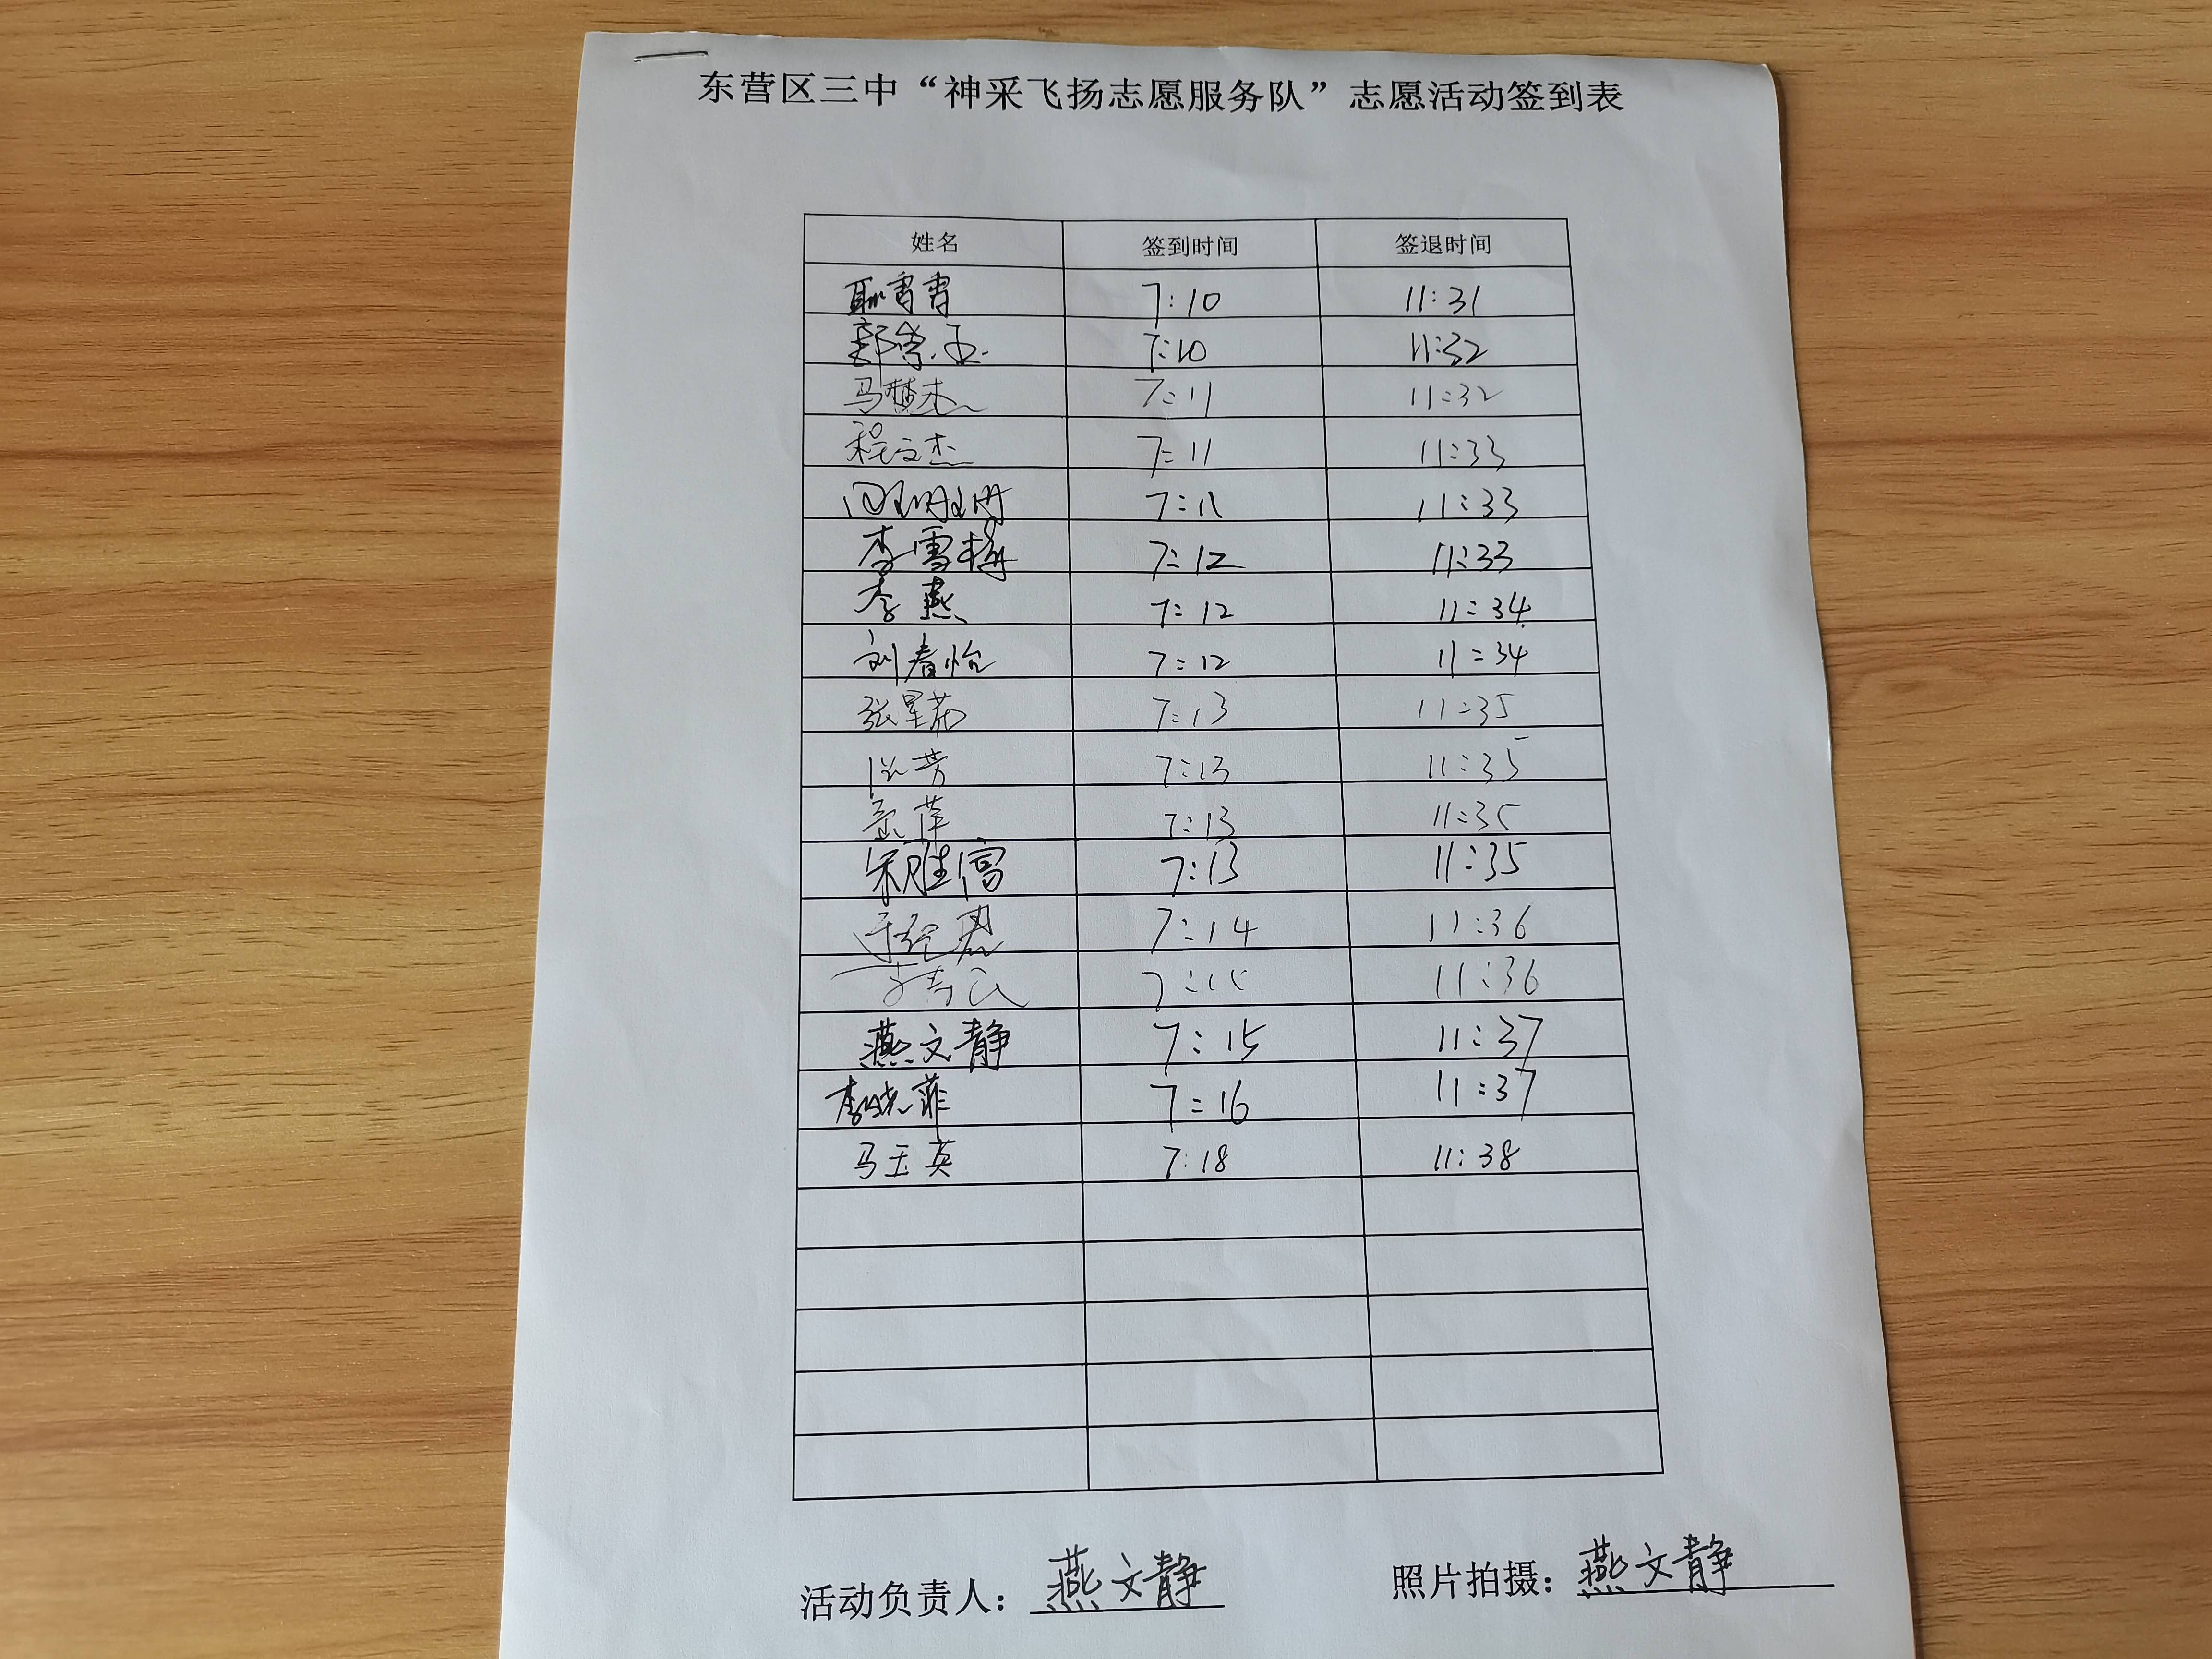 东营区三中“神采飞扬志愿服务队”志愿活动签到表
姓名 签到时间 签退时间
7:10 11:31
7:10 11:32
马梦杰 7:11 11:32
程文杰 7:11 11:33
7:11 11:33
李雪梅 7:12 11:33
李燕 7:12 11:34
刘春怡 7:12 11:34
张星苑 7:13 11:35
芳 7:13 11:35
萍 7:13 11:35
宋胜富 7:13 11:35
7:14 11:36
11:36
燕文静 7:15 11:37
李晓菲 7:16 11:37
马玉英 7:18 11:38
活动负责人：燕文静 照片拍摄：燕文静